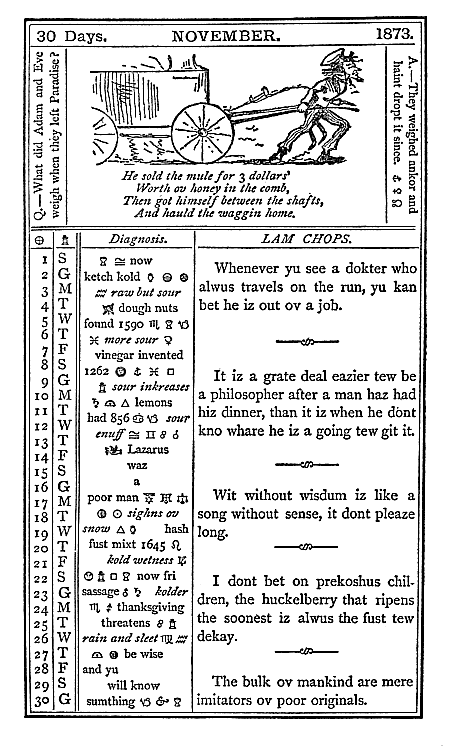 30 Days. NOVEMBER. 1873.
Q.—What did Adam and Eve
weigh when they left Paradise?
A.—They weighed ankor and
haint dropt it since.
He sold the mule for 3 dollars'
Worth ov honey in the comb,
Then got himself between the shafts,
And hauld the waggin home.
Diagnosis.
LAM CHOPS.
1 S
2 G
3 M
4 T
5 W
6 T
7 F
8 S
9 G
10 M
11 T
12 W
13 T
14 F
15 S
16 G
17 M
18 T
19 W
20 T
21 F
22 S
23 G
24 M
25 T
26 W
27 T
28 F
29 S
30 G
now
ketch kold
raw but sour
dough nuts
found 1590
more sour
vinegar invented
1262
sour inkreases
lemons
had 856 sour
enuff
Lazarus
waz
a
poor man
sighns ov
snow hash
fust mixt 1645
kold wetness
now fri
sassage kolder
thanksgiving
threatens
rain and sleet
be wise
and yu
will know
sumthing
Whenever yu see a dokter who
alwus travels on the run, yu kan
bet he iz out ov a job.
It iz a grate deal eazier tew be
a philosopher after a man haz had
hiz dinner, than it iz when he dont
kno whare he iz a going tew git it.
Wit without wisdum iz like a
song without sense, it dont pleaze
long.
I dont bet on prekoshus chil-
dren, the huckelberry that ripens
the soonest iz alwus the fust tew
dekay.
The bulk ov mankind are mere
imitators ov poor originals.